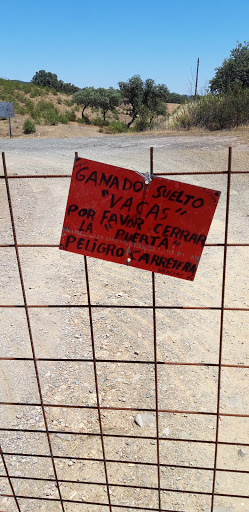 GANADO SUELTO
"VACAS"
POR FAVOR CERRAR
LA "PUERTA"
PELIGRO CARRETERA